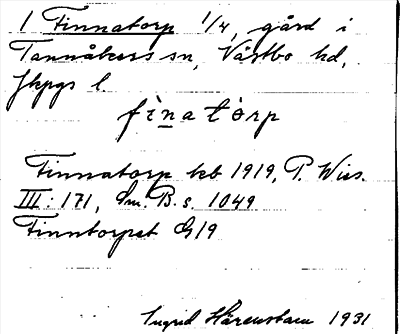 1 Finnatorp 1/4, gård i
Tannåkers sn, Västbo hd,
Jkpgs l.
fìnatòrp
Finnatorp kb 1919, P. Wies.
III: 171, Sm. B. s. 1049
Finntorpet G19
Ingrid Härenstam 1931